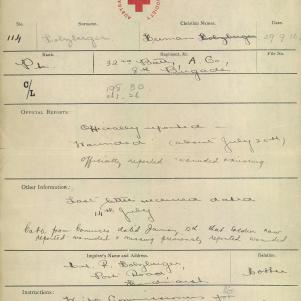 No.
Surname.
Christian Names.
114
Holzberger
Herman Holzberger
29.9.16
Rank.
Regiment, &c.
File No.
Pte
32nd Batt, A Co,
8th Brigade
C/L
OFFICIAL REPORTS:
Officially reported -
Wounded (about July 20th)
Officially reported wounded & missing
Other Information:
Last letter received dated
14th July
Cable from dated January 5th that soldier now
reported wounded & missing previously reported wounded
Inquirer's Name and Address.
Relation.
Mrs
Port Road,
Hindmarsh
Mother
Instructions: